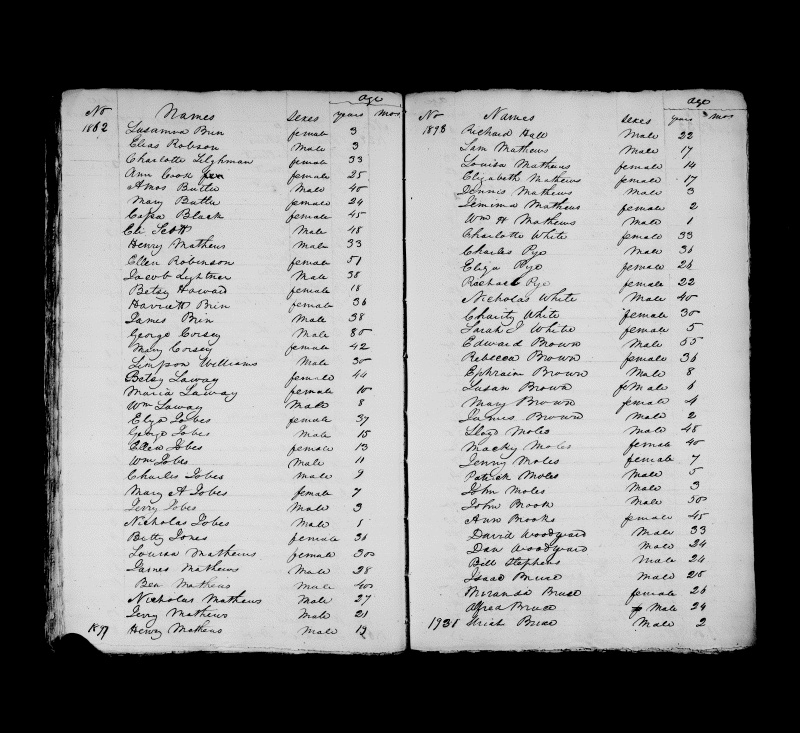 age
No Names Sexes years mos
1862 Susanna Brin female 3
Elias Robson Male 3
Charlotte Tilghman female 33
Ann Cook female 25
Amos Butler Male 40
Mary Butler female 24
Black female 45
Eli Scott Male 48
Henry Mathews Male 33
Ellen Robinson female 51
Jacob Lightner Male 38
Betsy Howard female 18
Harriett Brin female 36
James Brin Male 38
George Corsey Male 80
Mary Corsey female 42
Simpson Williams Male 30
Betsy Laway female 44
Maria Laway female 10
Wm Laway Male 8
Eliza Jobes female 37
George Jobes Male 15
Ellen Jobes female 13
Wm Jobes Male 11
Charles Jobes male 9
Mary A Jobes female 7
Jerry Jobes Male 3
Nicholas Jobes Male
Betty Jones female 36
Louisa Mathews female 30
James Mathews Male 28
Ben Mathews Male 40
Nicholas Mathews Male 27
Jerry Mathews Male 21
1897 Henry Mathews Male 19
age
No Names Sexes years mos
1898 Richard Hall Male 22
Sam Mathews Male 17
Louisa Mathews female 14
Elizabeth Mathews female 17
Dennis Mathews Male 3
Jemima Mathews female 2
Wm H Mathews Male 1
Charlotte White female 33
Charles Pye Male 36
Eliza Pye female 26
Rachael Pye female 22
Nicholas White Male 40
Charity White female 30
Sarah J White female 5
Edward Brown Male 55
Rebecca Brown female 36
Ephraim Brown Male 8
Susan Brown 6
Mary Brown female 4
James Brown Male 2
Lloyd Moles Male 48
Macky Moles female 40
Jenny Moles female 7
Patrick Moles Male 5
John Moles Male 3
John Brook Male 50
Ann Brooks female 45
David Woodyard Male 33
Dan Woodyard Male 24
Bill Stephens Male 24
Isaac Bruce Male 26
Miranda Bruce female 26
Alfred Bruce Male 24
Bruce Male 2